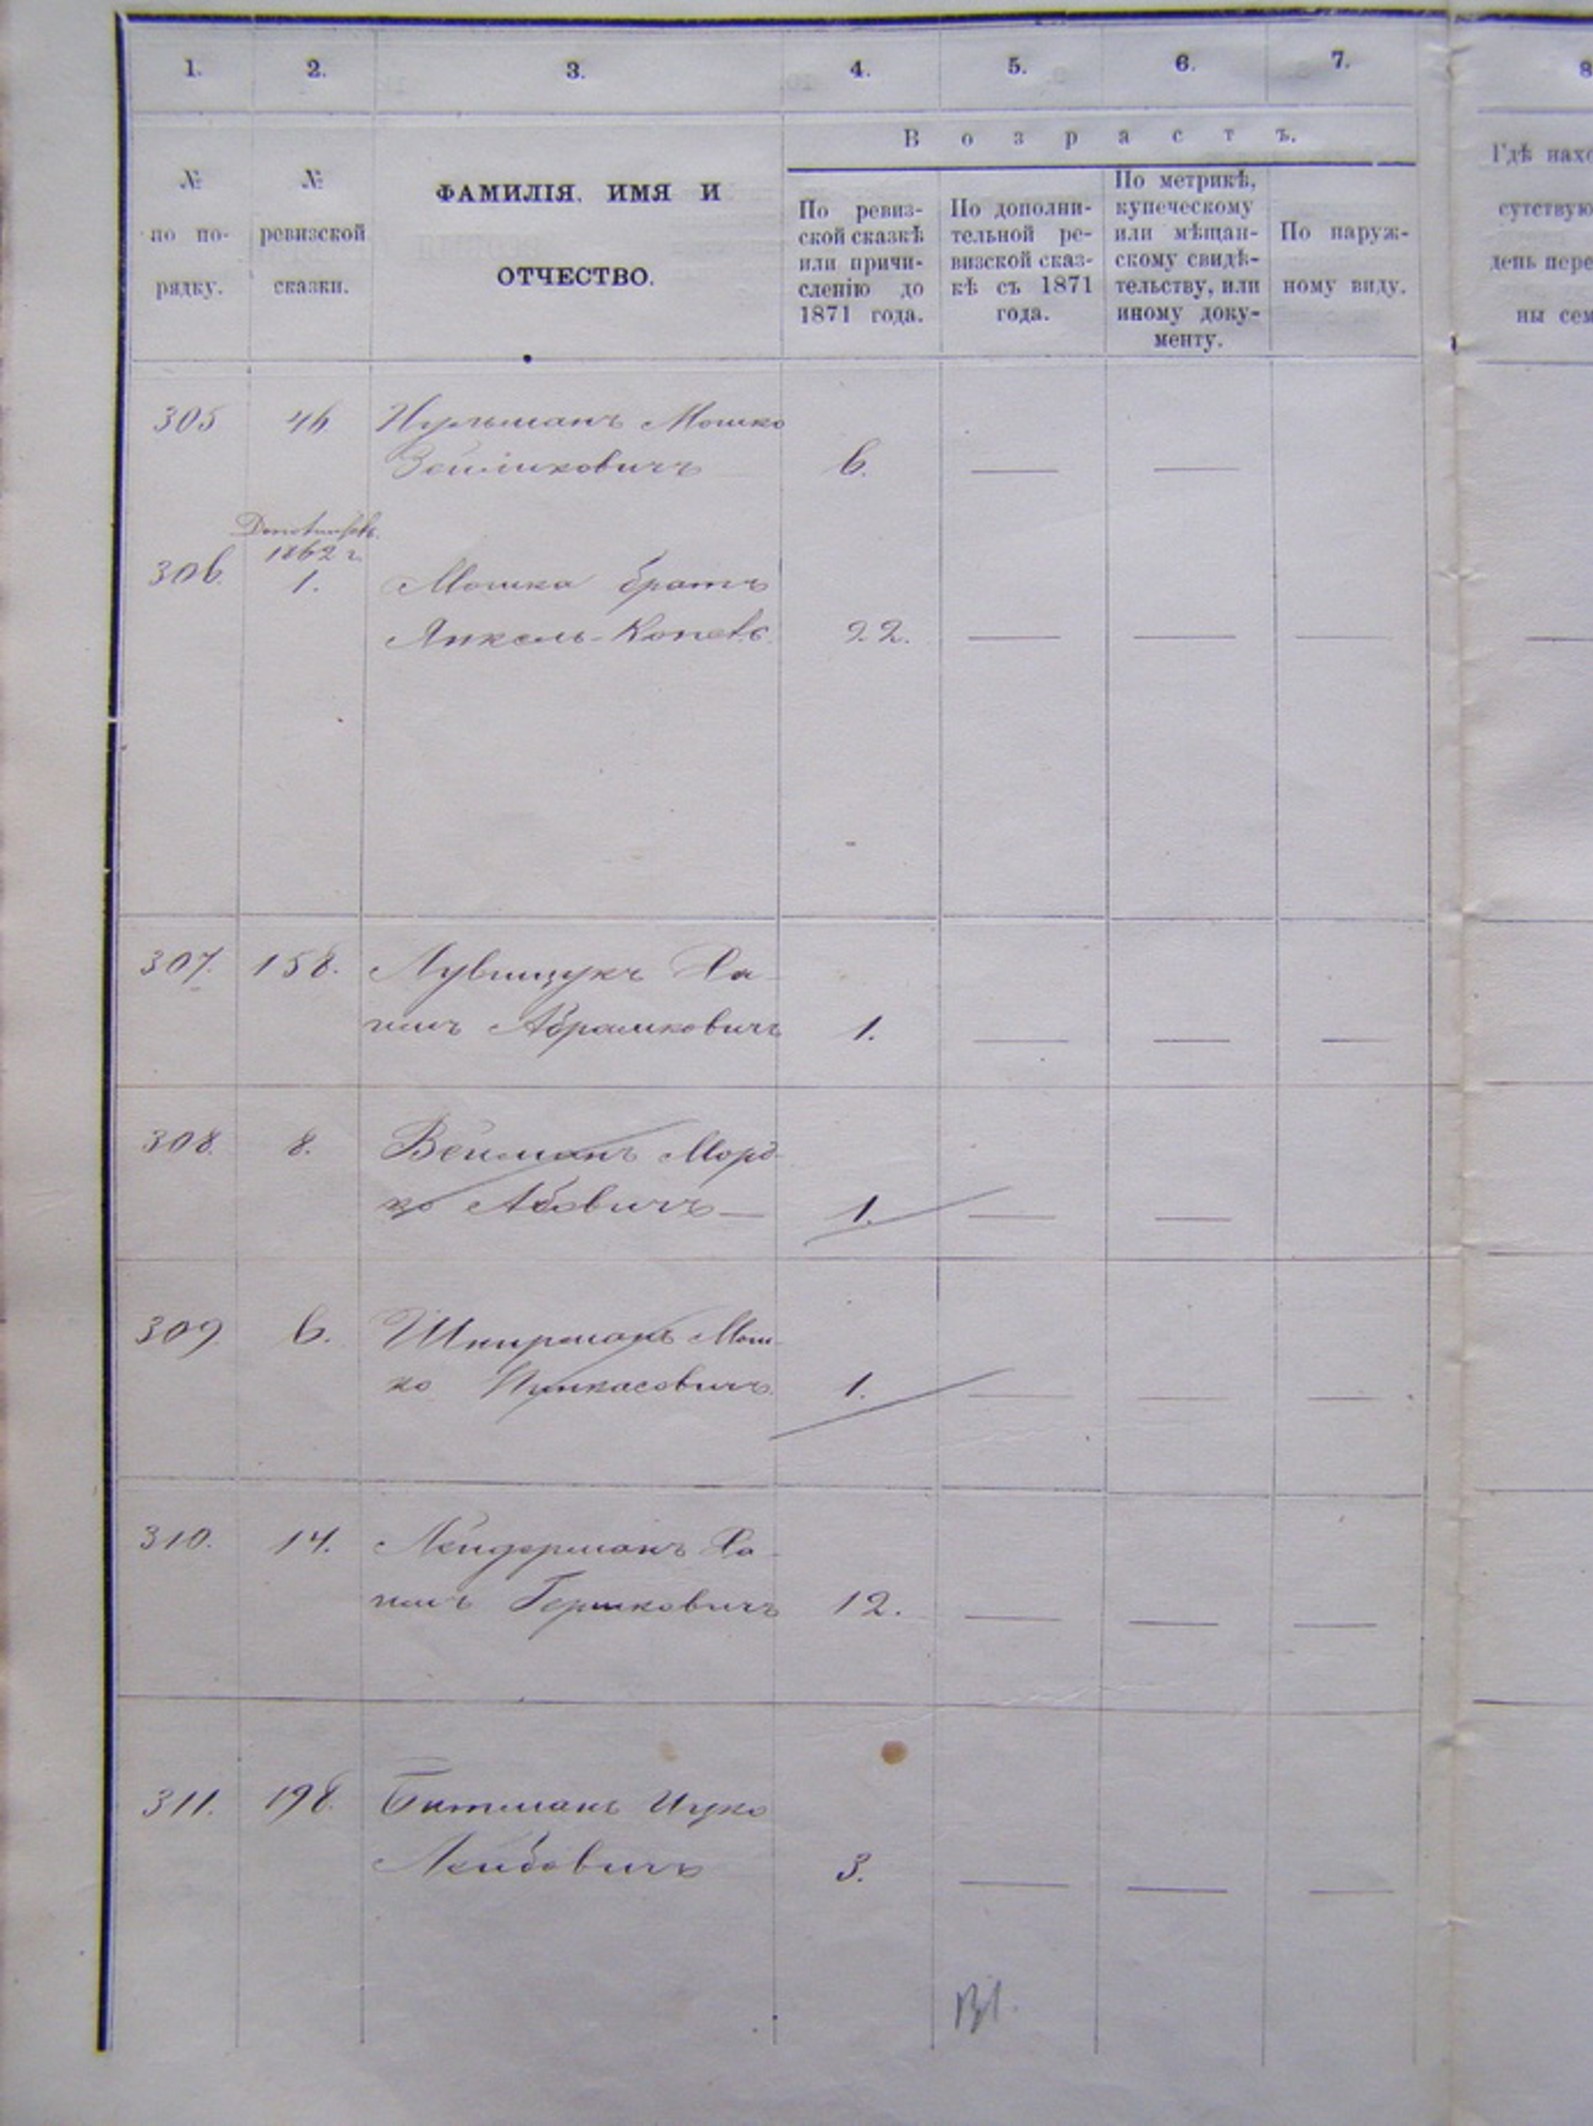 1. 2. 3. 4. 5. 6. 7. 8
В о з р а с т ъ.
№
по по-
рядку.
№
ревизской
сказки.
ФАМИЛІЯ, ИМЯ И
ОТЧЕСТВО.
По ревиз-
ской сказкѣ
или причи-
сленію до
1871 года.
По дополни-
тельной ре-
визской сказ-
кѣ съ 1871
года.
По метрикѣ,
купеческому
или мѣщан-
скому свидѣ-
тельству, или
иному доку-
менту.
По наруж-
ному виду.
Гдѣ нахо
сутствую
день пере
ны сем
305 46 Мошко
6. — —
1862 г.
306. 1. Мошка братъ
Янкель- 22. — — — —
307. 158. Ха-
имъ Абрамковичъ 1. — — —
308. 8. Вейманъ Морд-
ко Абовичъ — 1. — —
309. 6. Шпирманъ Мош-
ко Пинкасовичъ 1. — — —
310. 14. Лейдерманъ Ха-
имъ Гершковичъ 12. — — —
311. 198. Гитманъ Ицко
Лейбовичъ 3. — — —